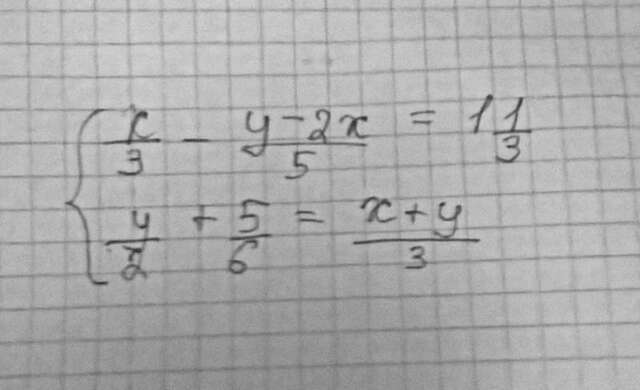 x/3 - (y-2x)/5 = 1 1/3
y/2 + 5/6 = (x+y)/3